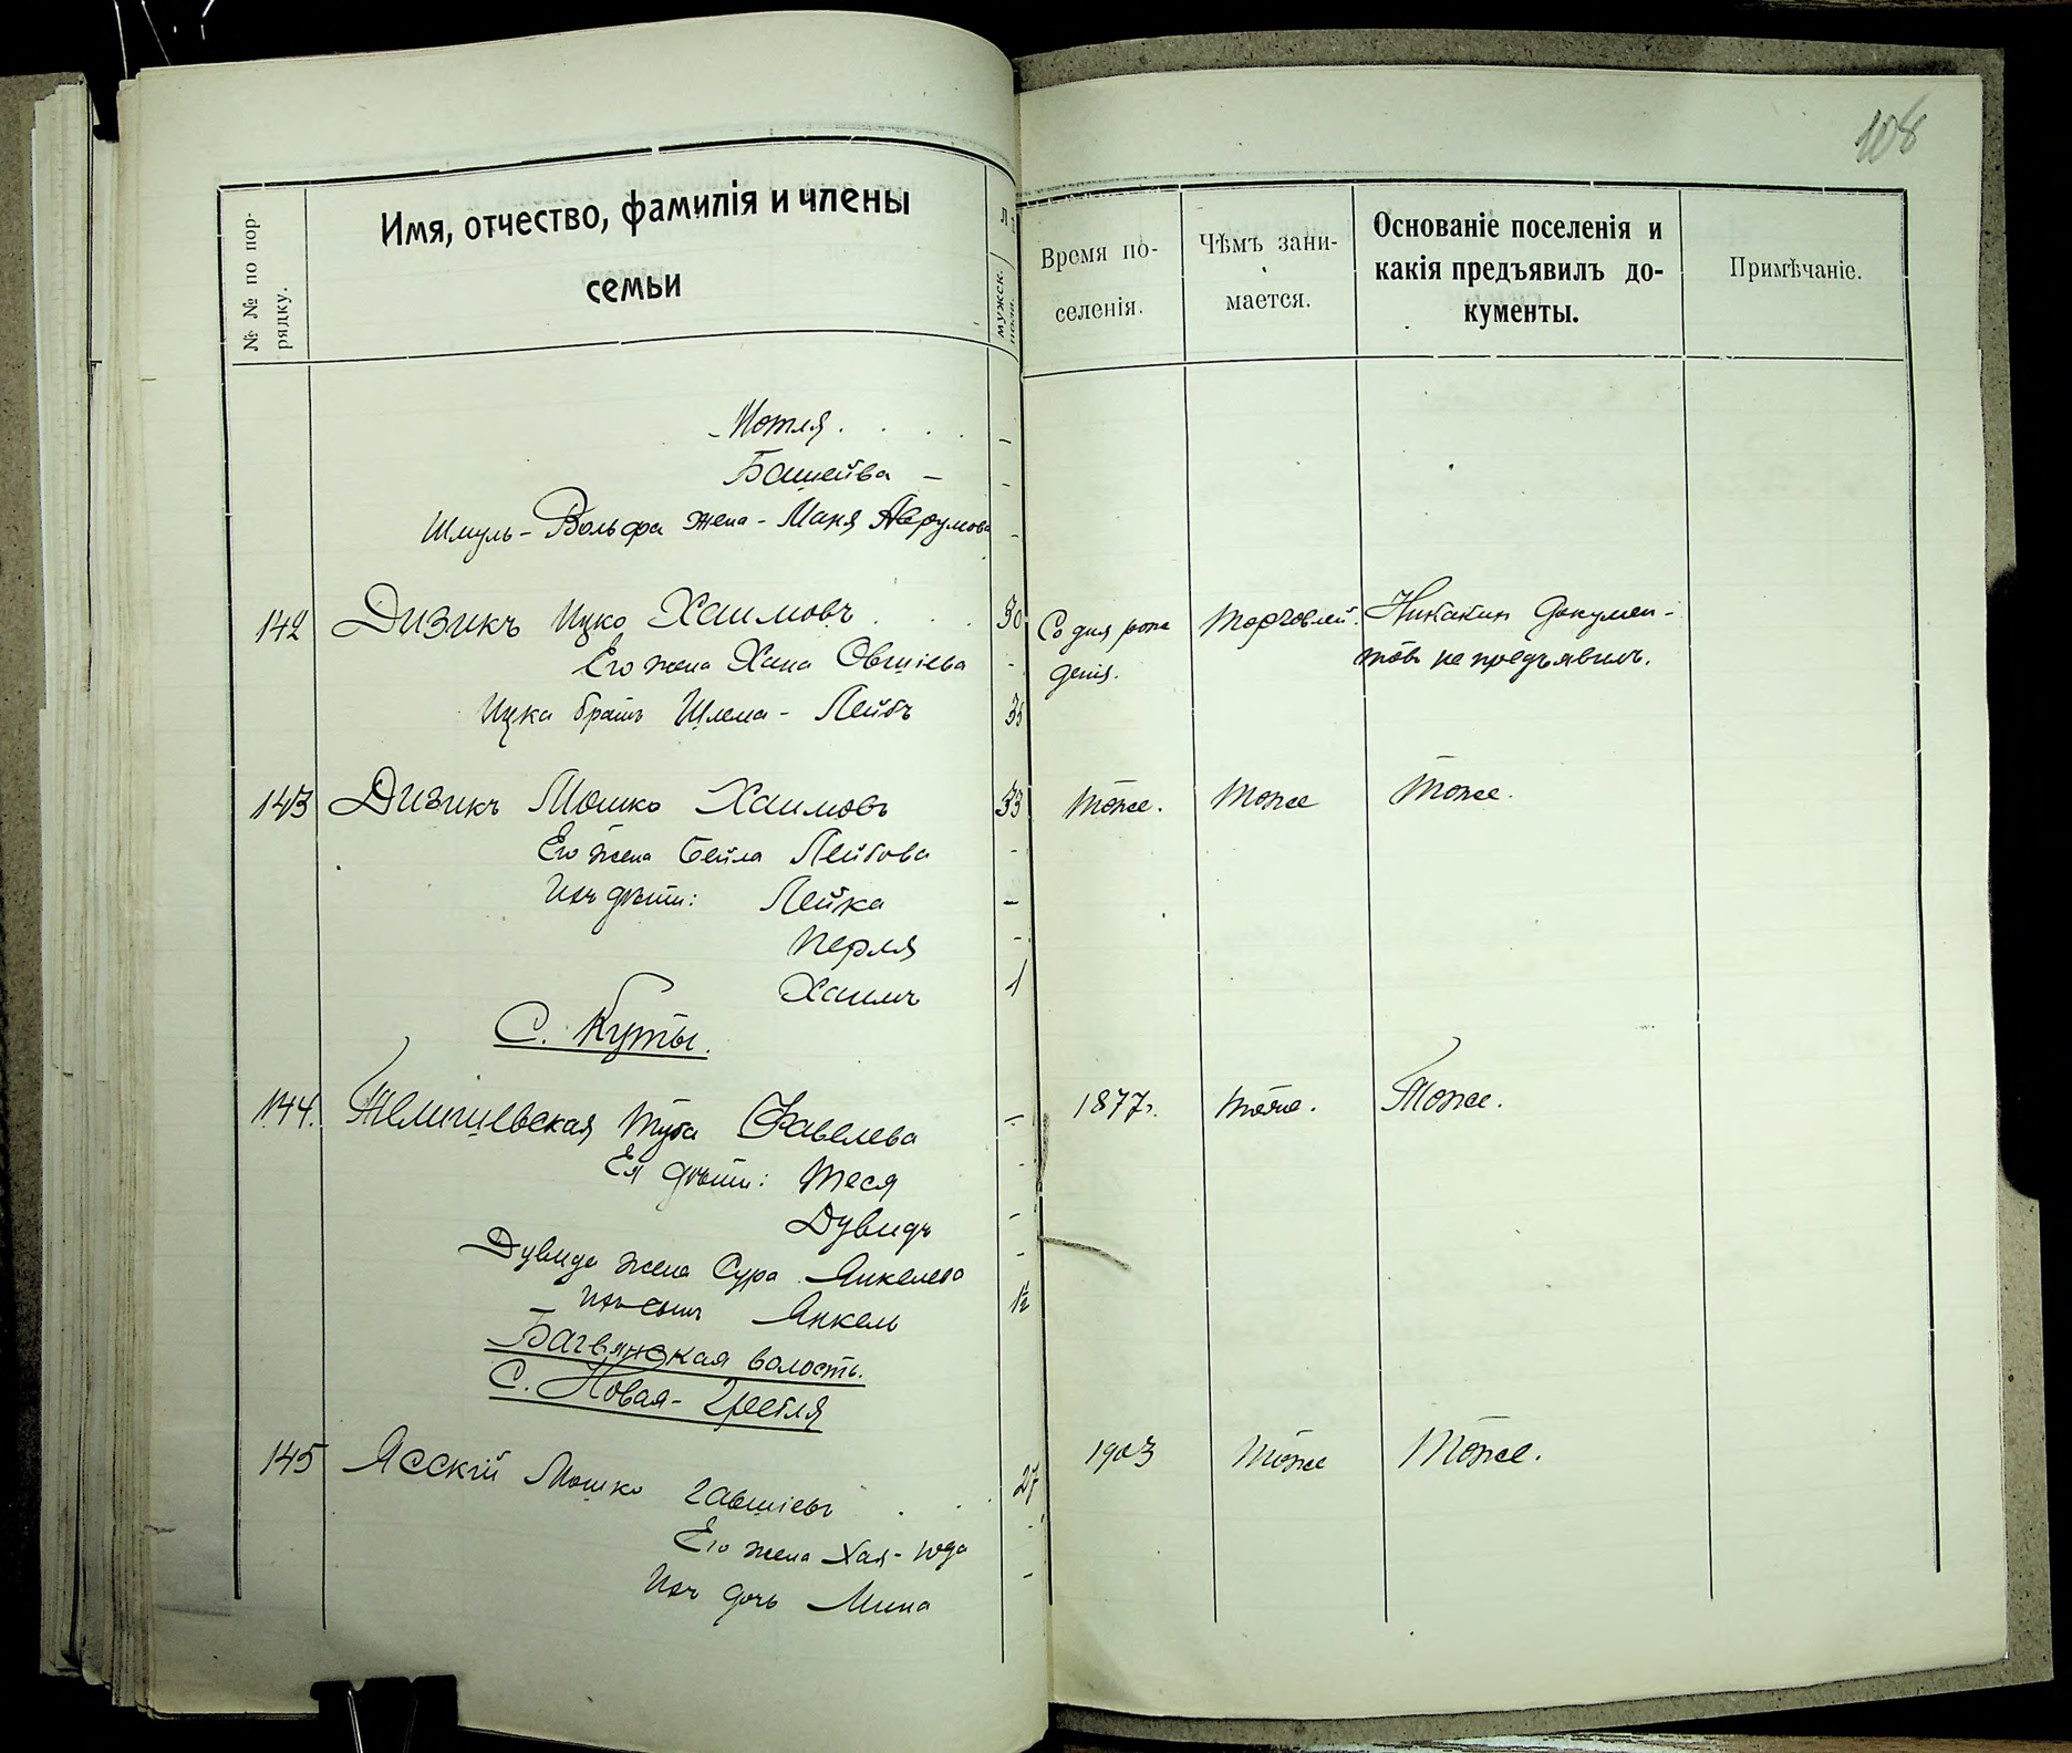 108
№ № по пор-
рядку.
Имя, отчество, фамилія и члены
семьи
мужск.
пола.
Время по-
селенія.
Чѣмъ зани-
мается.
Основаніе поселенія и
какія предъявилъ до-
кументы.
Примѣчаніе.
Мотля . . . . -
Башейва - -
Шмуль-Вольфа жена - Маня Аврумова -
142 Дизикъ Ицко Хаимовъ . . . 30 Со дня рож Торговлей. Никакихъ докумен-
Его жена Хана Овшіева - денія. товъ не предъявилъ.
Ицка братъ Шлема - Лейбъ 35
143 Дизикъ Мошко Хаимовъ 33 Тоже. Тоже Тоже.
Его жена Бейла Лейбова -
Ихъ дѣти: Лейка -
Перля -
Хаимъ 1
С. Куты.
144. Туба Тоже. Тоже.
1877г.
Ея дѣти: Теся -
Дувидъ -
Дувида жена Сура Янкелева -
Ихъ сынъ Янкель 1½
волость.
С. Новая-Гребля
145 Ясскій Мошко Гавшіевъ . . . 27 1903 Тоже Тоже.
Его жена Хая-Юда -
Ихъ дочь Мина -